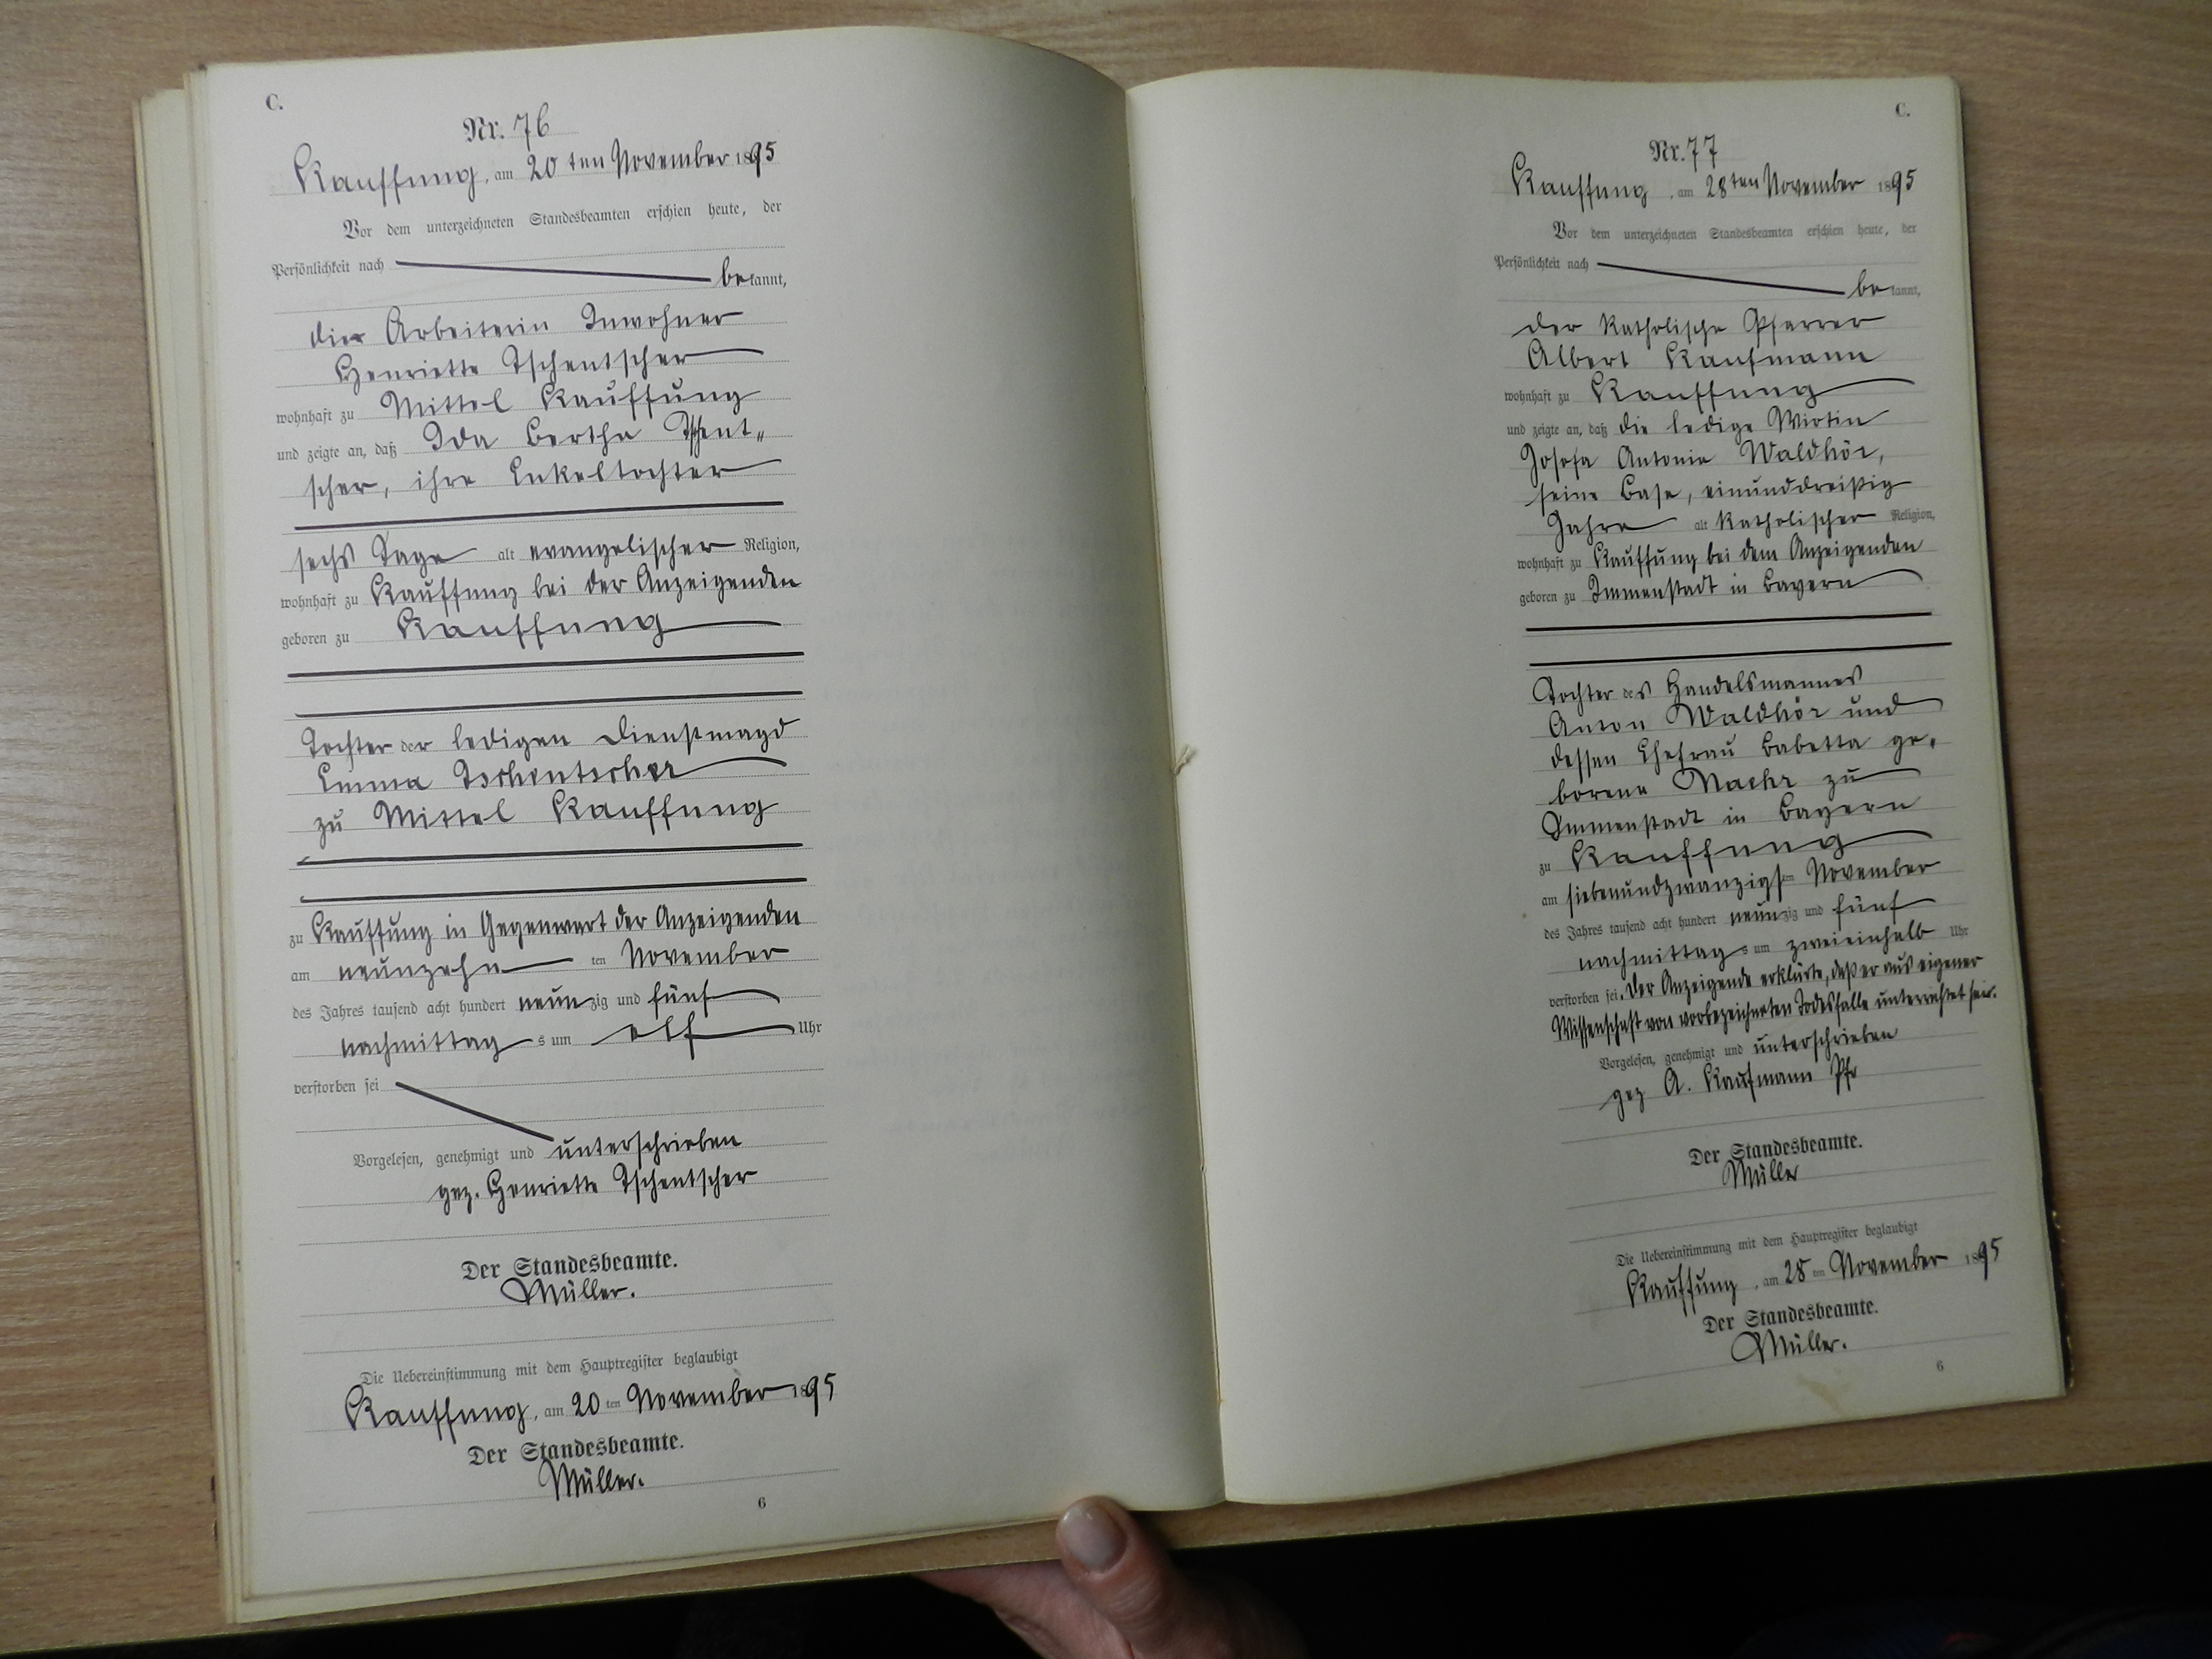 C.
Nr. 76
Kauffung, am 20 ten November 1895
Vor dem unterzeichneten Standesbeamten erschien heute, der
Persönlichkeit nach
bekannt,
die Arbeiterin Inwohner
Henriette Tschentscher
wohnhaft zu Mittel Kauffung
und zeigte an, daß Ida Bertha Tschent„
scher, ihre Enkeltochter
sechs Tage alt evangelischer Religion,
wohnhaft zu Kauffung bei der Anzeigenden
geboren zu Kauffung
Tochter der ledigen Dienstmagd
Emma Tschentscher
zu Mittel Kauffung
zu Kauffung in Gegenwart der Anzeigenden
am neunzehn ten November
des Jahres tausend acht hundert neunzig und fünf
nachmittags um elf Uhr
verstorben sei
Vorgelesen, genehmigt und unterschrieben
gez. Henriette Tschentscher
Der Standesbeamte.
Müller.
Die Uebereinstimmung mit dem Hauptregister beglaubigt
Kauffung, am 20 ten November 1895
Der Standesbeamte.
Müller.
6
C.
Nr. 77
Kauffung, am 28ten November 1895
Vor dem unterzeichneten Standesbeamten erschien heute, der
Persönlichkeit nach
bekannt,
der katholische Pfarrer
Albert Kaufmann
wohnhaft zu Kauffung
und zeigte an, daß die ledige Wirtin
Josefa Antonie Waldhör,
seine Base, einunddreißig
Jahre alt katholischer Religion,
wohnhaft zu Kauffung bei dem Anzeigenden
geboren zu Immenstadt in Bayern
Tochter des Handelsmannes
Anton Waldhör und
dessen Ehefrau Babetta ge„
borene zu
Immenstadt in Bayern
zu Kauffung
am siebenundzwanzigsten November
des Jahres tausend acht hundert neunzig und fünf
nachmittags um zweieinhalb Uhr
verstorben sei. Der Anzeigende erklärte, daß er aus eigener
Wissenschaft von vorbezeichneten Todesfalle unterrichtet sei.
Vorgelesen, genehmigt und unterschrieben
gez A. Kaufmann Pfr
Der Standesbeamte.
Müller
Die Uebereinstimmung mit dem Hauptregister beglaubigt
Kauffung, am 28 ten November 1895
Der Standesbeamte.
Müller.
6